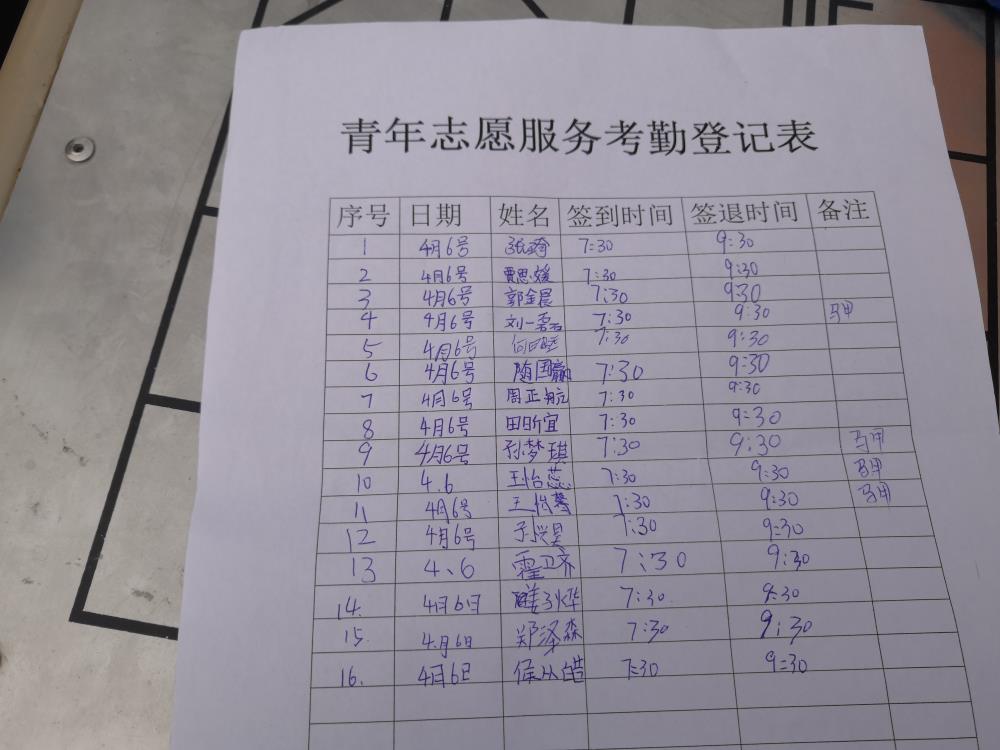 青年志愿服务考勤登记表
序号 日期 姓名 签到时间 签退时间 备注
1 4月6号 张琦 7:30 9:30
2 4月6号 贾思媛 7:30 9:30
3 4月6号 郭金晨 7:30 9:30
4 4月6号 刘一磊 7:30 9:30 马甲
5 4月6号 7:30 9:30
6 4月6号 随国赢 7:30 9:30
7 4月6号 周正航 7:30 9:30
8 4月6号 田昕宜 7:30 9:30
9 4月6号 孙梦琪 7:30 9:30 马甲
10 4.6 王怡蕊 7:30 9:30 马甲
11 4月6号 王怡 7:30 9:30 马甲
12 4月6号 7:30 9:30
13 4、6 霍卫齐 7:30 9:30
14. 4月6日 7:30 9:30
15. 4月6日 郑泽森 7:30 9:30
16. 4月6日 侯从皓 7:30 9:30